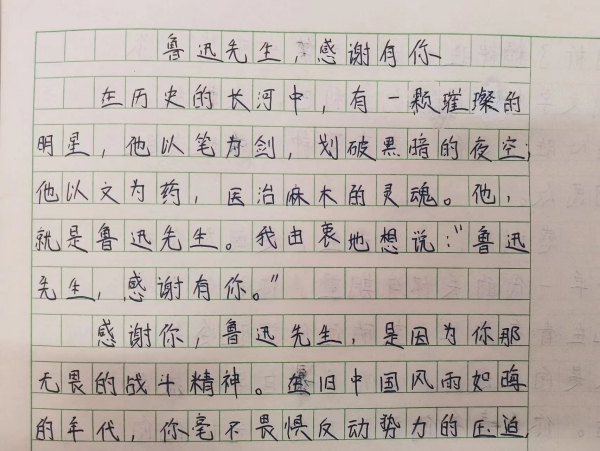 鲁迅先生,感谢有你
在历史的长河中,有一颗璀璨的
明星,他以笔为剑,划破黑暗的夜空;
他以文为药,医治麻木的灵魂。他,
就是鲁迅先生。我由衷地想说:“鲁迅
先生,感谢有你。”
感谢你,鲁迅先生,是因为你那
无畏的战斗精神。在旧中国风雨如晦
的年代,你毫不畏惧反动势力的压迫,